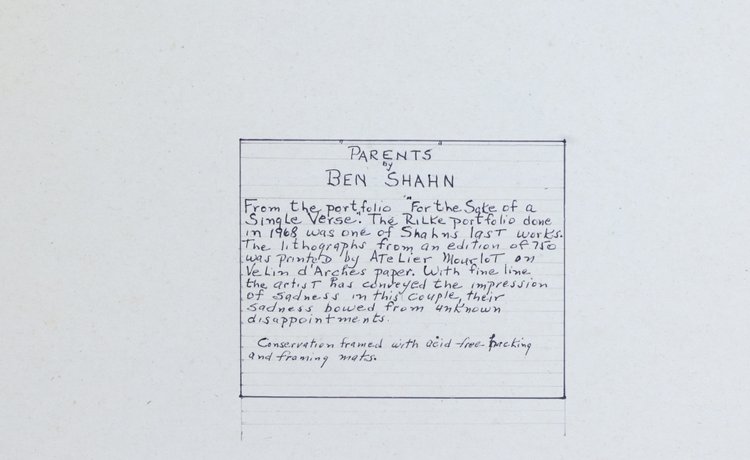 "PARENTS"
by
BEN SHAHN
From the portfolio "For the Sake of a
Single Verse". The Rilke portfolio done
in 1968 was one of Shahns last works.
The lithographs from an edition of 750
was printed by Atelier Mourlot on
Velin d'Arches paper. With fine line
the artist has conveyed the impression
of sadness in this couple, their
sadness bowed from unknown
disappointments.
Conservation framed with acid-free backing
and framing mats.